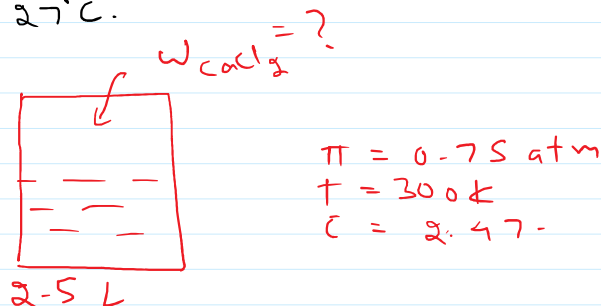 27°C.
W CaCl2 = ?
π = 0.75 atm
T = 300 K
i = 2.47.
2.5 L